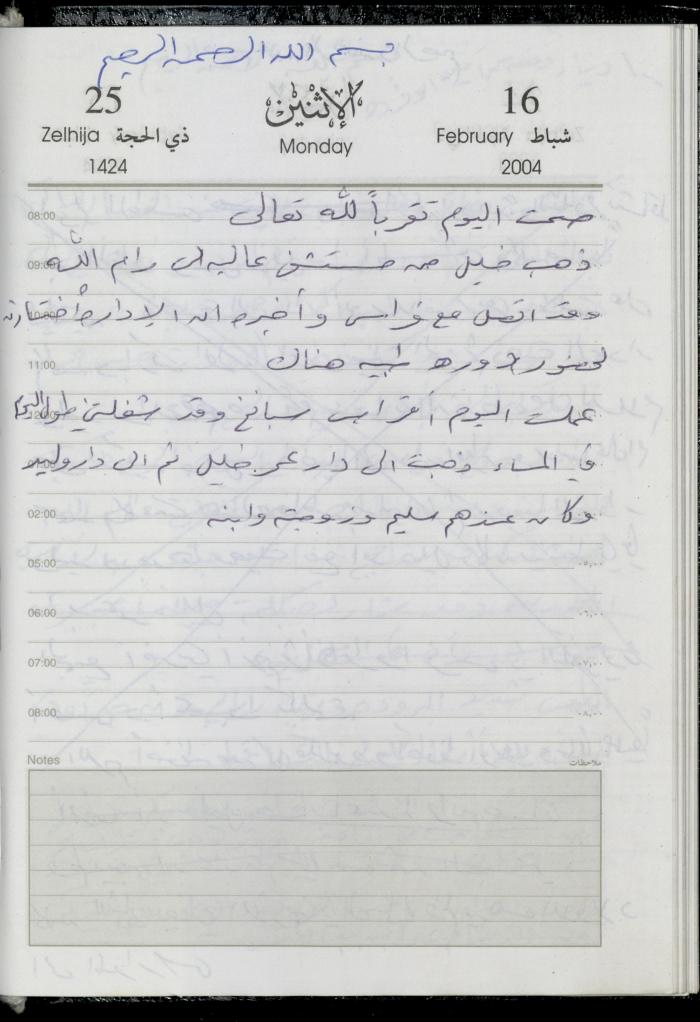 بسم الله الرحمن الرحيم
25 الإثنين 16
Zelhija ذي الحجة Monday February شباط
1424 2004
08:00 صمت اليوم تقرباً لله تعالى
09:00 ذهب خليل من مستشفى عاليه الى رام الله
وقد اتصل مع فراس وأخبره ان الإدارة اختارته
11:00 لحضور دوره طبيه هناك
عملت اليوم أقراص سبانخ وقد شغلتني طوال اليوم
في المساء ذهبت الى دار عمر خليل ثم الى دار وليد
02:00 وكان عندهم سليم وزوجته وابنه
05:00 ٠٥,٠٠
06:00 ٠٦,٠٠
07:00 ٠٧,٠٠
08:00 ٠٨,٠٠
Notes ملاحظات